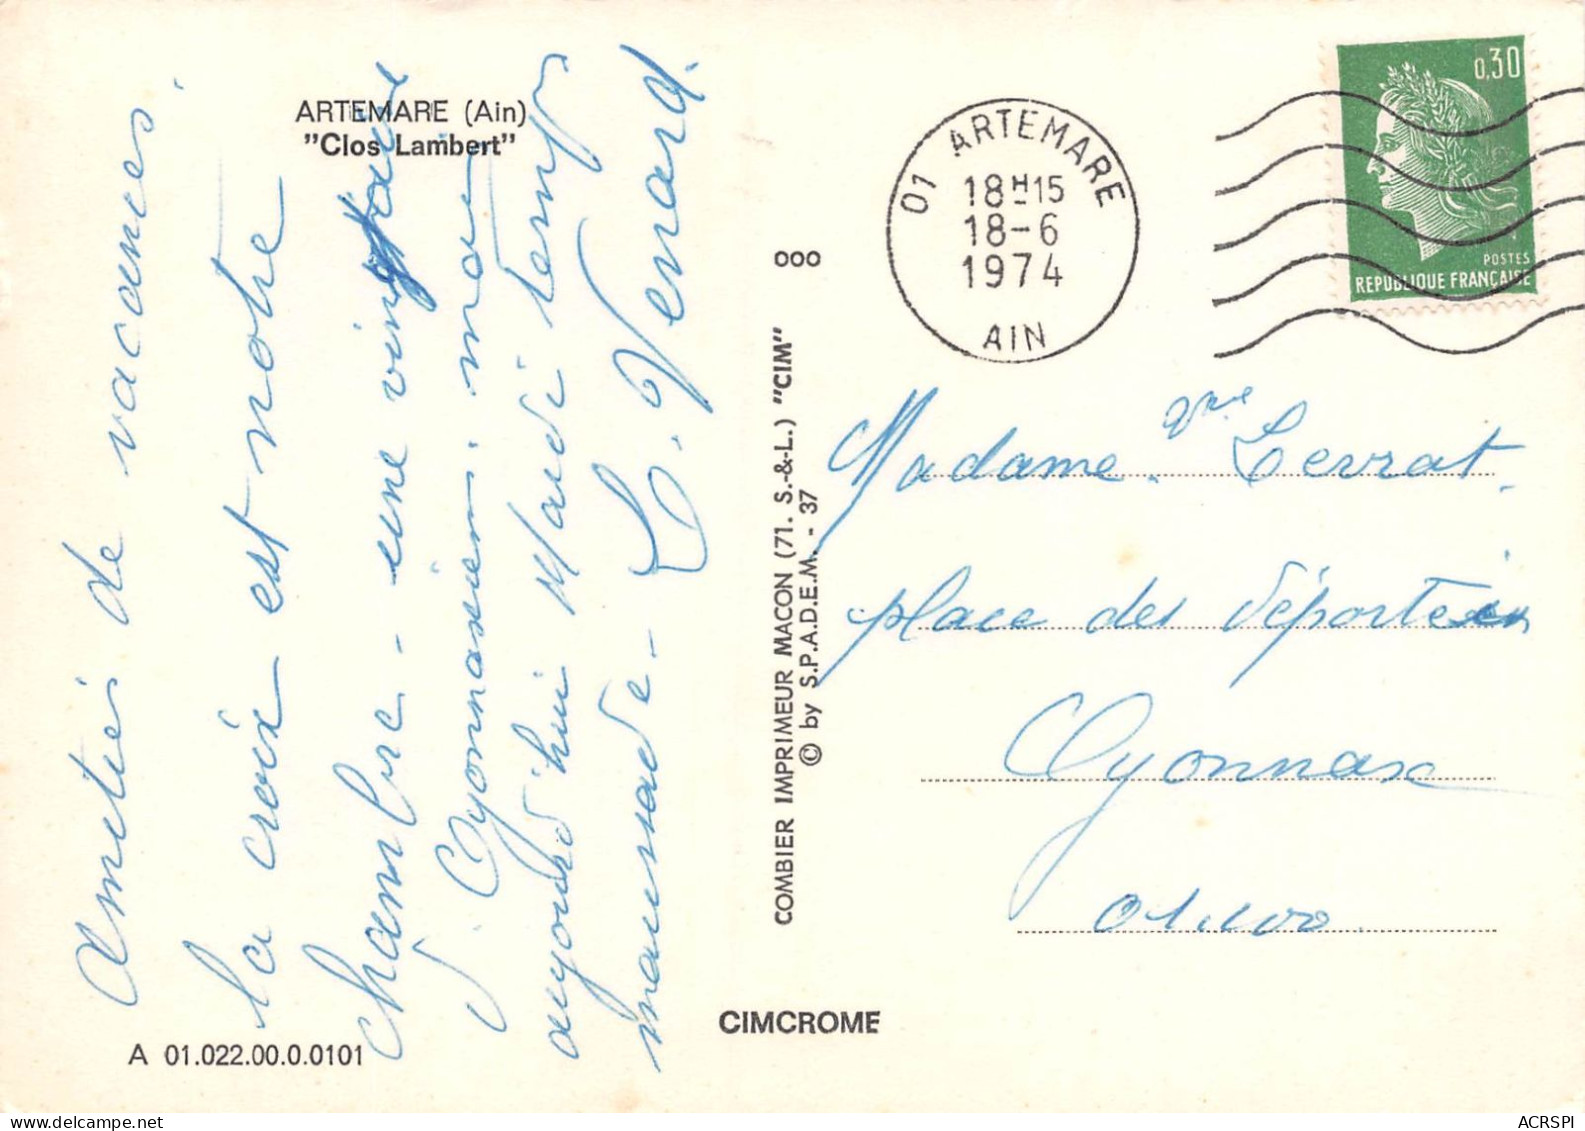 ARTEMARE (Ain)
"Clos Lambert"
Amitiés de vacances.
la croix est notre
chambre - une vingtaine
d'Oyonnaxiens. mon
aujourd'hui Maudi temps
maussade - L. Venard.
A 01.022.00.0.0101
COMBIER IMPRIMEUR MACON (71. S.-&-L.) "CIM"
© by S.P.A.D.E.M. - 37
ooo
CIMCROME
01 ARTEMARE
18H15
18-6
1974
AIN
0,30
POSTES
REPUBLIQUE FRANÇAISE
Madame Vve Levrat.
place des Déportés
Oyonnax
01.100.
ACRSPI